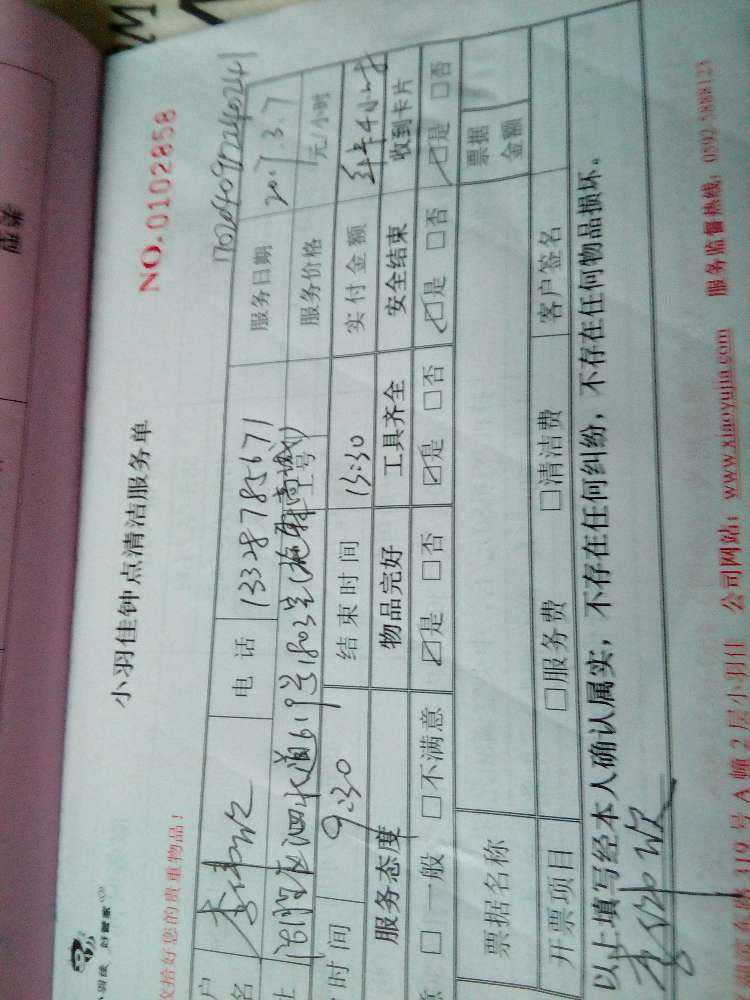 小羽佳钟点清洁服务单
NO.0102858
收拾好您的贵重物品!
17020409524802441
户名 李伟欣 电话 13328785671 服务日期 2017.3.7
泗水道619号1803室 工号 服务价格 元/小时
时间 9:30 结束时间 13:30 实付金额 4小时
服务态度 物品完好 工具齐全 安全结束 收到卡片
□一般 □不满意 ☑是 □否 ☑是 □否 ☑是 □否 ☑是 □否
票据名称 票据金额
开票项目 □服务费 □清洁费 客户签名
以上填写经本人确认属实,不存在任何纠纷,不存在任何物品损坏。
李伟欣
319号A幢2层小羽佳 公司网站:www.xiaoyujia.com 服务监督热线:0592-5888123